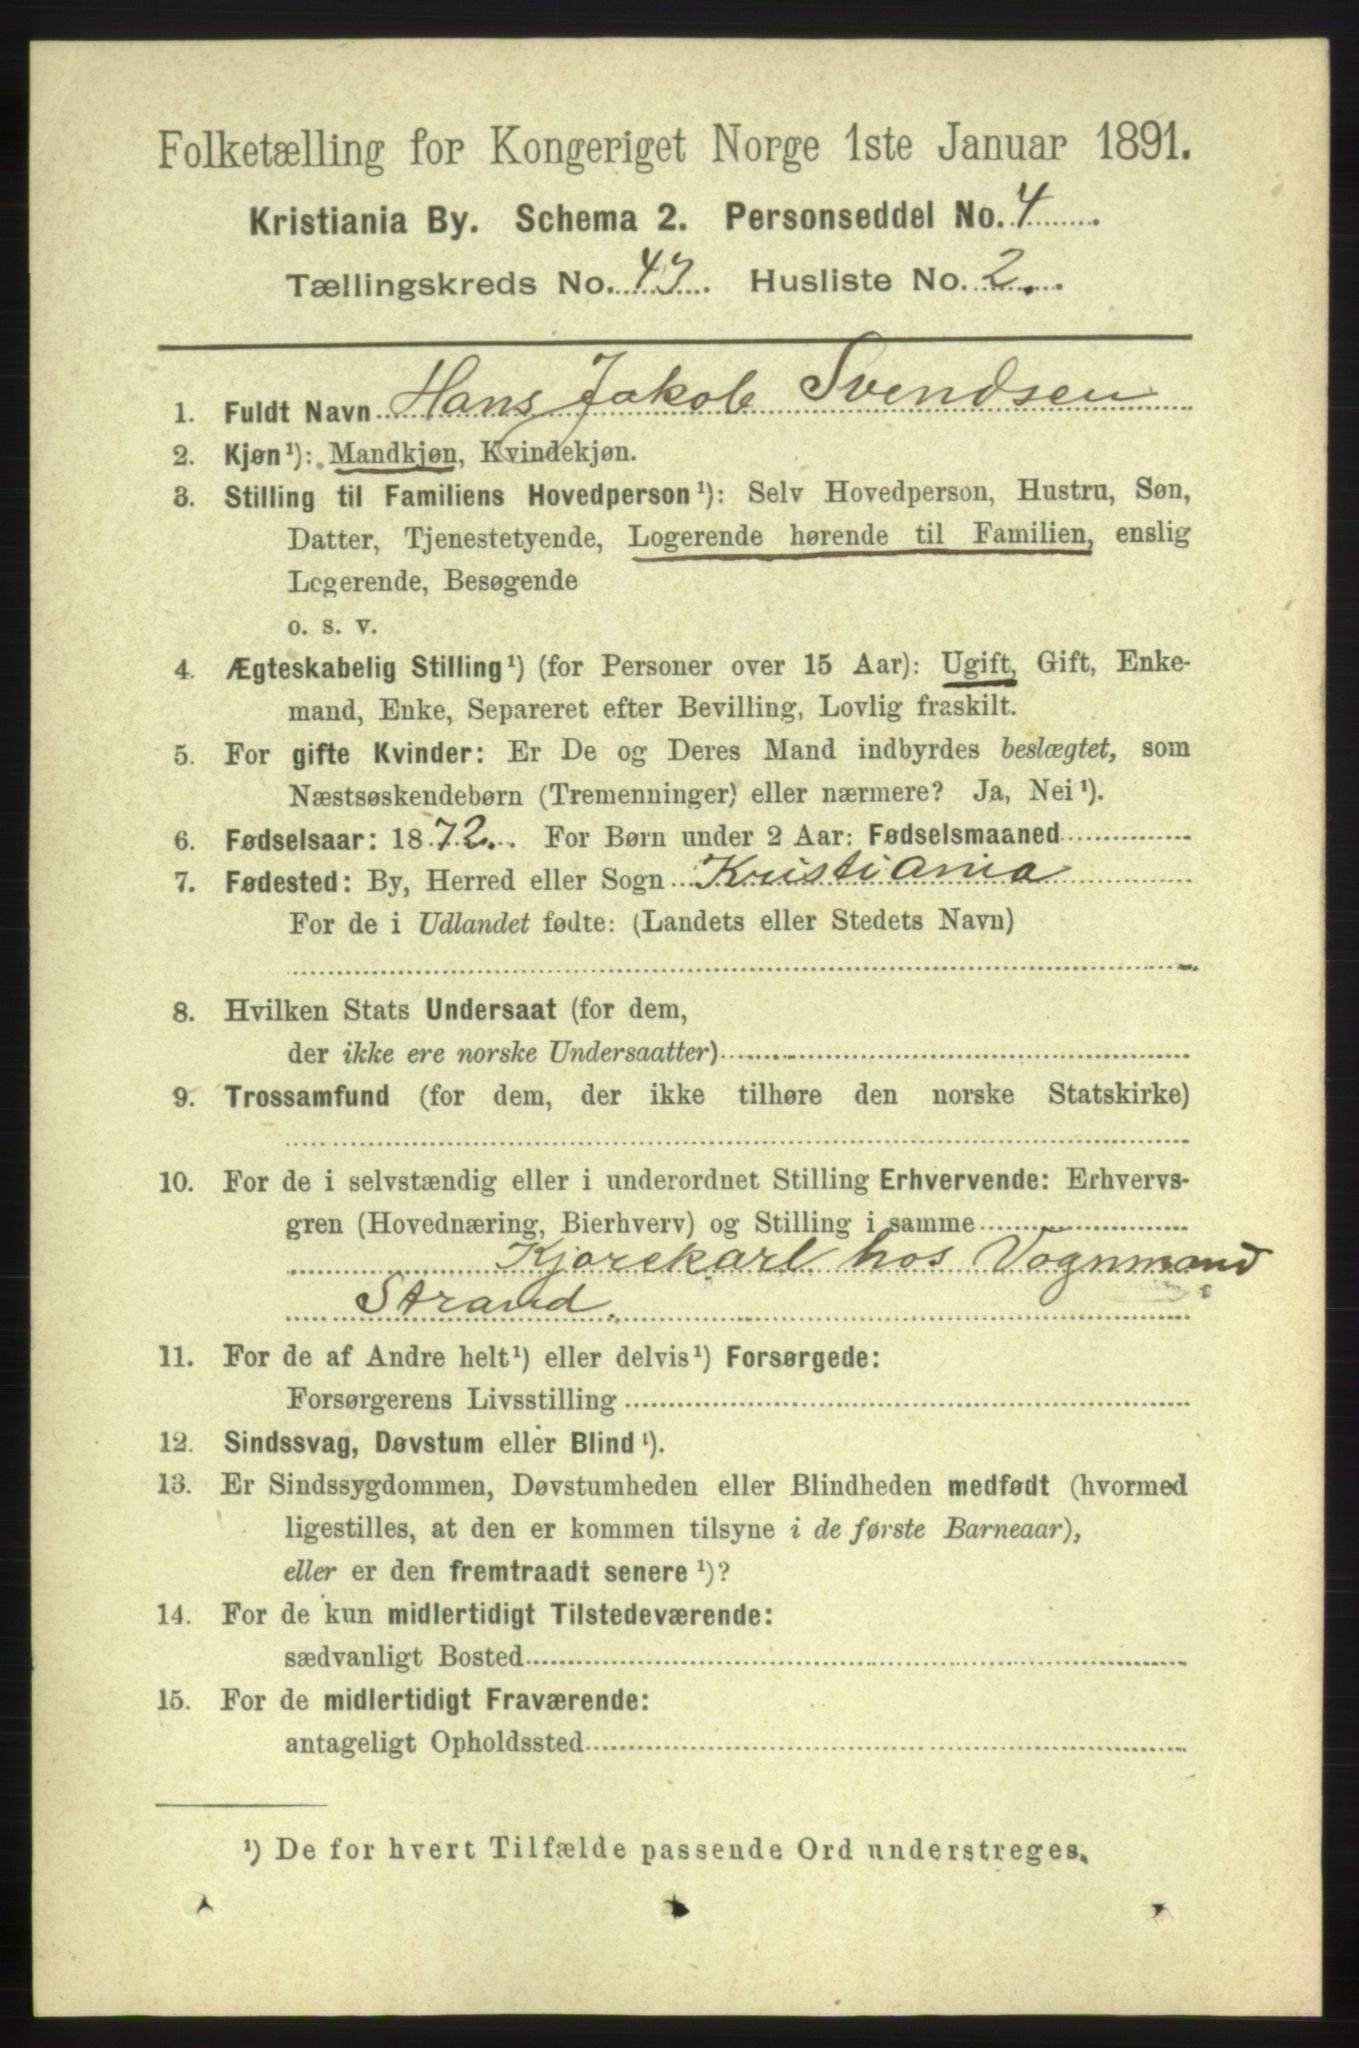 Folketælling for Kongeriget Norge 1ste Januar 1891.
Kristiania By. Schema 2. Personseddel No. 4
Tællingskreds No. 43. Husliste No. 2.
1. Fuldt Navn Hans Jakob Svendsen
2. Kjøn¹): Mandkjøn, Kvindekjøn.
3. Stilling til Familiens Hovedperson¹): Selv Hovedperson, Hustru, Søn,
Datter, Tjenestetyende, Logerende hørende til Familien, enslig
Logerende, Besøgende
o. s. v.
4. Ægteskabelig Stilling¹) (for Personer over 15 Aar): Ugift, Gift, Enke-
mand, Enke, Separeret efter Bevilling, Lovlig fraskilt.
5. For gifte Kvinder: Er De og Deres Mand indbyrdes beslægtet, som
Næstsøskendebørn (Tremenninger) eller nærmere? Ja, Nei¹).
6. Fødselsaar: 1872. For Børn under 2 Aar: Fødselsmaaned
7. Fødested: By, Herred eller Sogn Kristiania
For de i Udlandet fødte: (Landets eller Stedets Navn)
8. Hvilken Stats Undersaat (for dem,
der ikke ere norske Undersaatter)
9. Trossamfund (for dem, der ikke tilhøre den norske Statskirke)
10. For de i selvstændig eller i underordnet Stilling Erhvervende: Erhvervs-
gren (Hovednæring, Bierhverv) og Stilling i samme
Kjørekarl hos Vognmand
Strand.
11. For de af Andre helt¹) eller delvis¹) Forsørgede:
Forsørgerens Livsstilling
12. Sindssvag, Døvstum eller Blind¹).
13. Er Sindssygdommen, Døvstumheden eller Blindheden medfødt (hvormed
ligestilles, at den er kommen tilsyne i de første Barneaar),
eller er den fremtraadt senere¹)?
14. For de kun midlertidigt Tilstedeværende:
sædvanligt Bosted
15. For de midlertidigt Fraværende:
antageligt Opholdssted
¹) De for hvert Tilfælde passende Ord understreges.